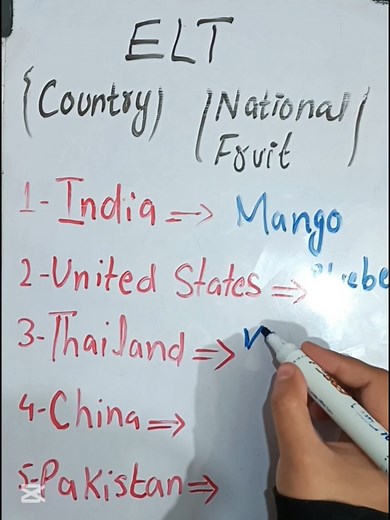 ELT
(Country) (National
Fruit)
1-India => Mango
2-United States =>
3-Thailand =>
4-China =>
5-Pakistan =>